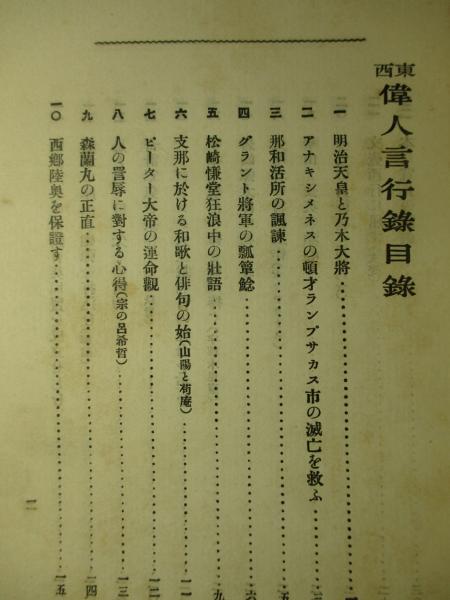 東西偉人言行錄目錄
一 明治天皇と乃木大將
二 アナキシメネスの頓才ランプサカス市の滅亡を救ふ 三
三 那和活所の諷諫 五
四 グラント將軍の瓢簞鯰 六
五 松崎慊堂狂浪中の壯語 九
六 支那に於ける和歌と俳句の始(山陽と荀庵) 一一
七 ピーター大帝の運命觀 一二
八 人の詈辱に對する心得(宗の呂希哲) 一三
九 森蘭丸の正直 一四
一〇 西鄕陸奧を保證す 一五
一